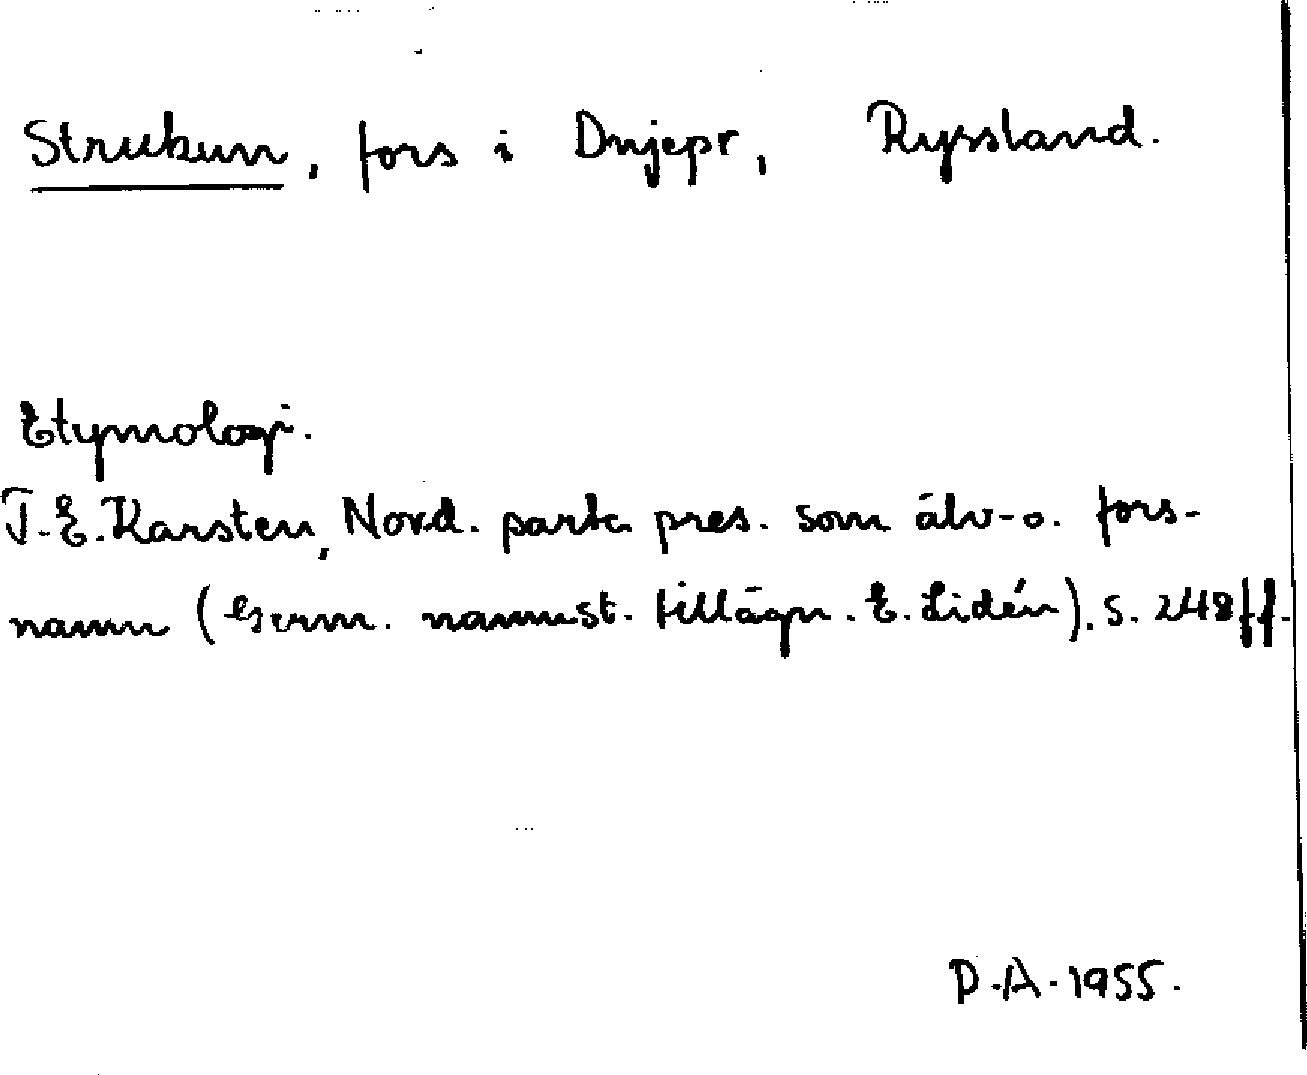 Strukun, fors i Dnjepr, Ryssland.
Etymologi.
T.E. Karsten, Nord. partc pres. som älv- o. fors-
namn (Germ. namnst. tillägn. E. Lidén). s. 248 ff.
D.A. 1955.